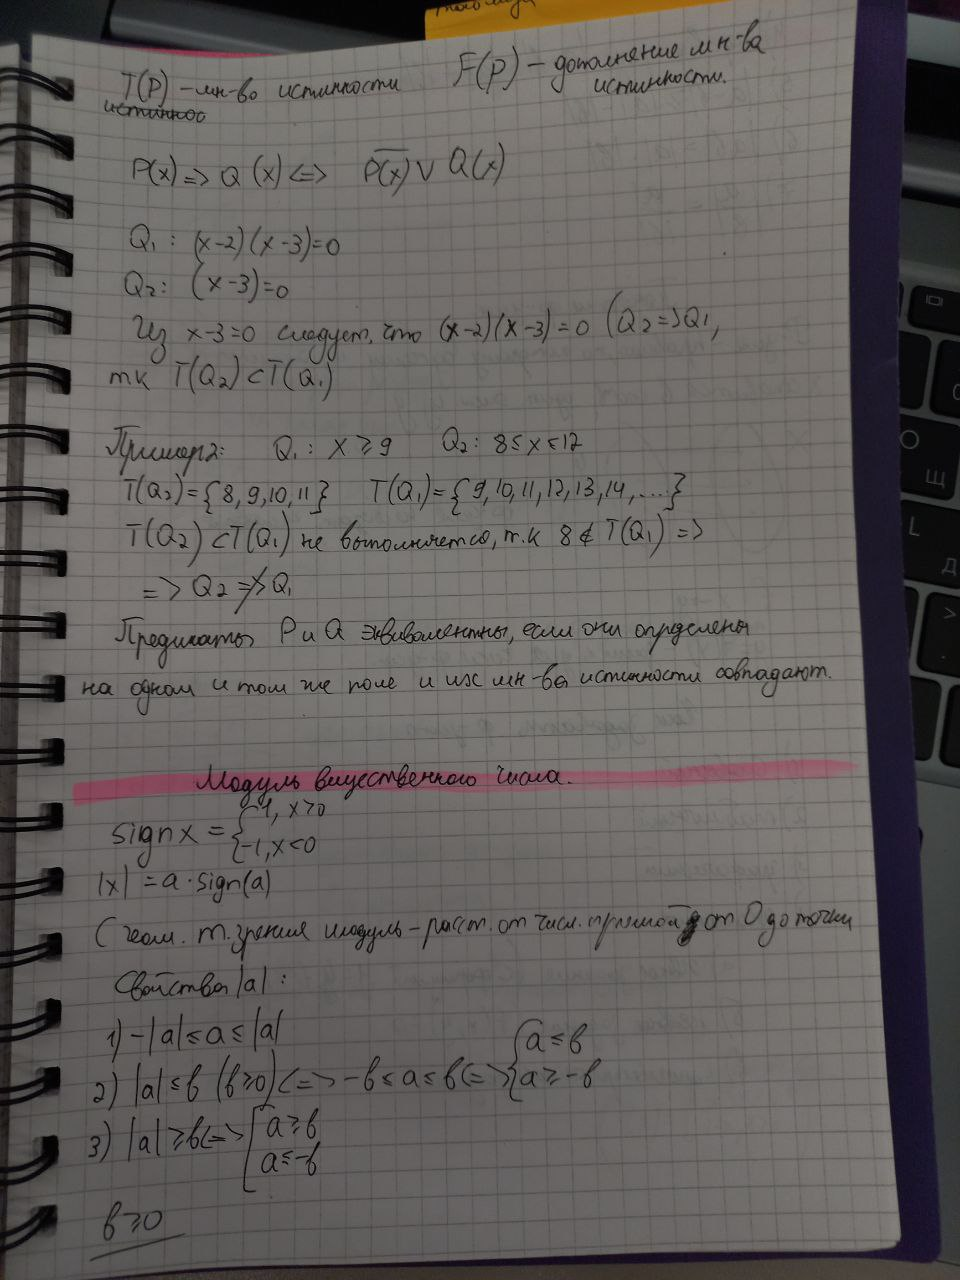 T(P) – мн-во истинности F(P) – дополнение мн-ва
истинное истинности.
P(x) => Q(x) <=> \overline{P(x)} V Q(x)
Q₁ : (x-2)(x-3)=0
Q₂: (x-3)=0
Из x-3=0 следует, что (x-2)(x-3)=0 (Q₂=>Q₁,
тк T(Q₂)⊂T(Q₁)
Пример2: Q₁ : x ≥ 9 Q₂ : 8≤x≤12
T(Q₂)={8,9,10,11} T(Q₁)={9,10,11,12,13,14,....}
T(Q₂)⊂T(Q₁) не выполняется, т.к 8∉T(Q₁) =>
=> Q₂ ≠> Q₁
Предикаты P и Q эквивалентны, если они определены
на одном и том же поле и их мн-ва истинности совпадают.
Модуль вещественного числа.
sign x = {1, x>0
{-1, x<0
|x| = a · sign(a)
С геом. т.зрения модуль – расст. от числ. прямой от 0 до точки
Свойства |a| :
1) -|a| ≤ a ≤ |a|
2) |a| ≤ в (в≥0) <=> -в ≤ a ≤ в <=> {a ≤ в
{a ≥ -в
3) |a| ≥ в <=> [a ≥ в
[a ≤ -в
в ≥ 0